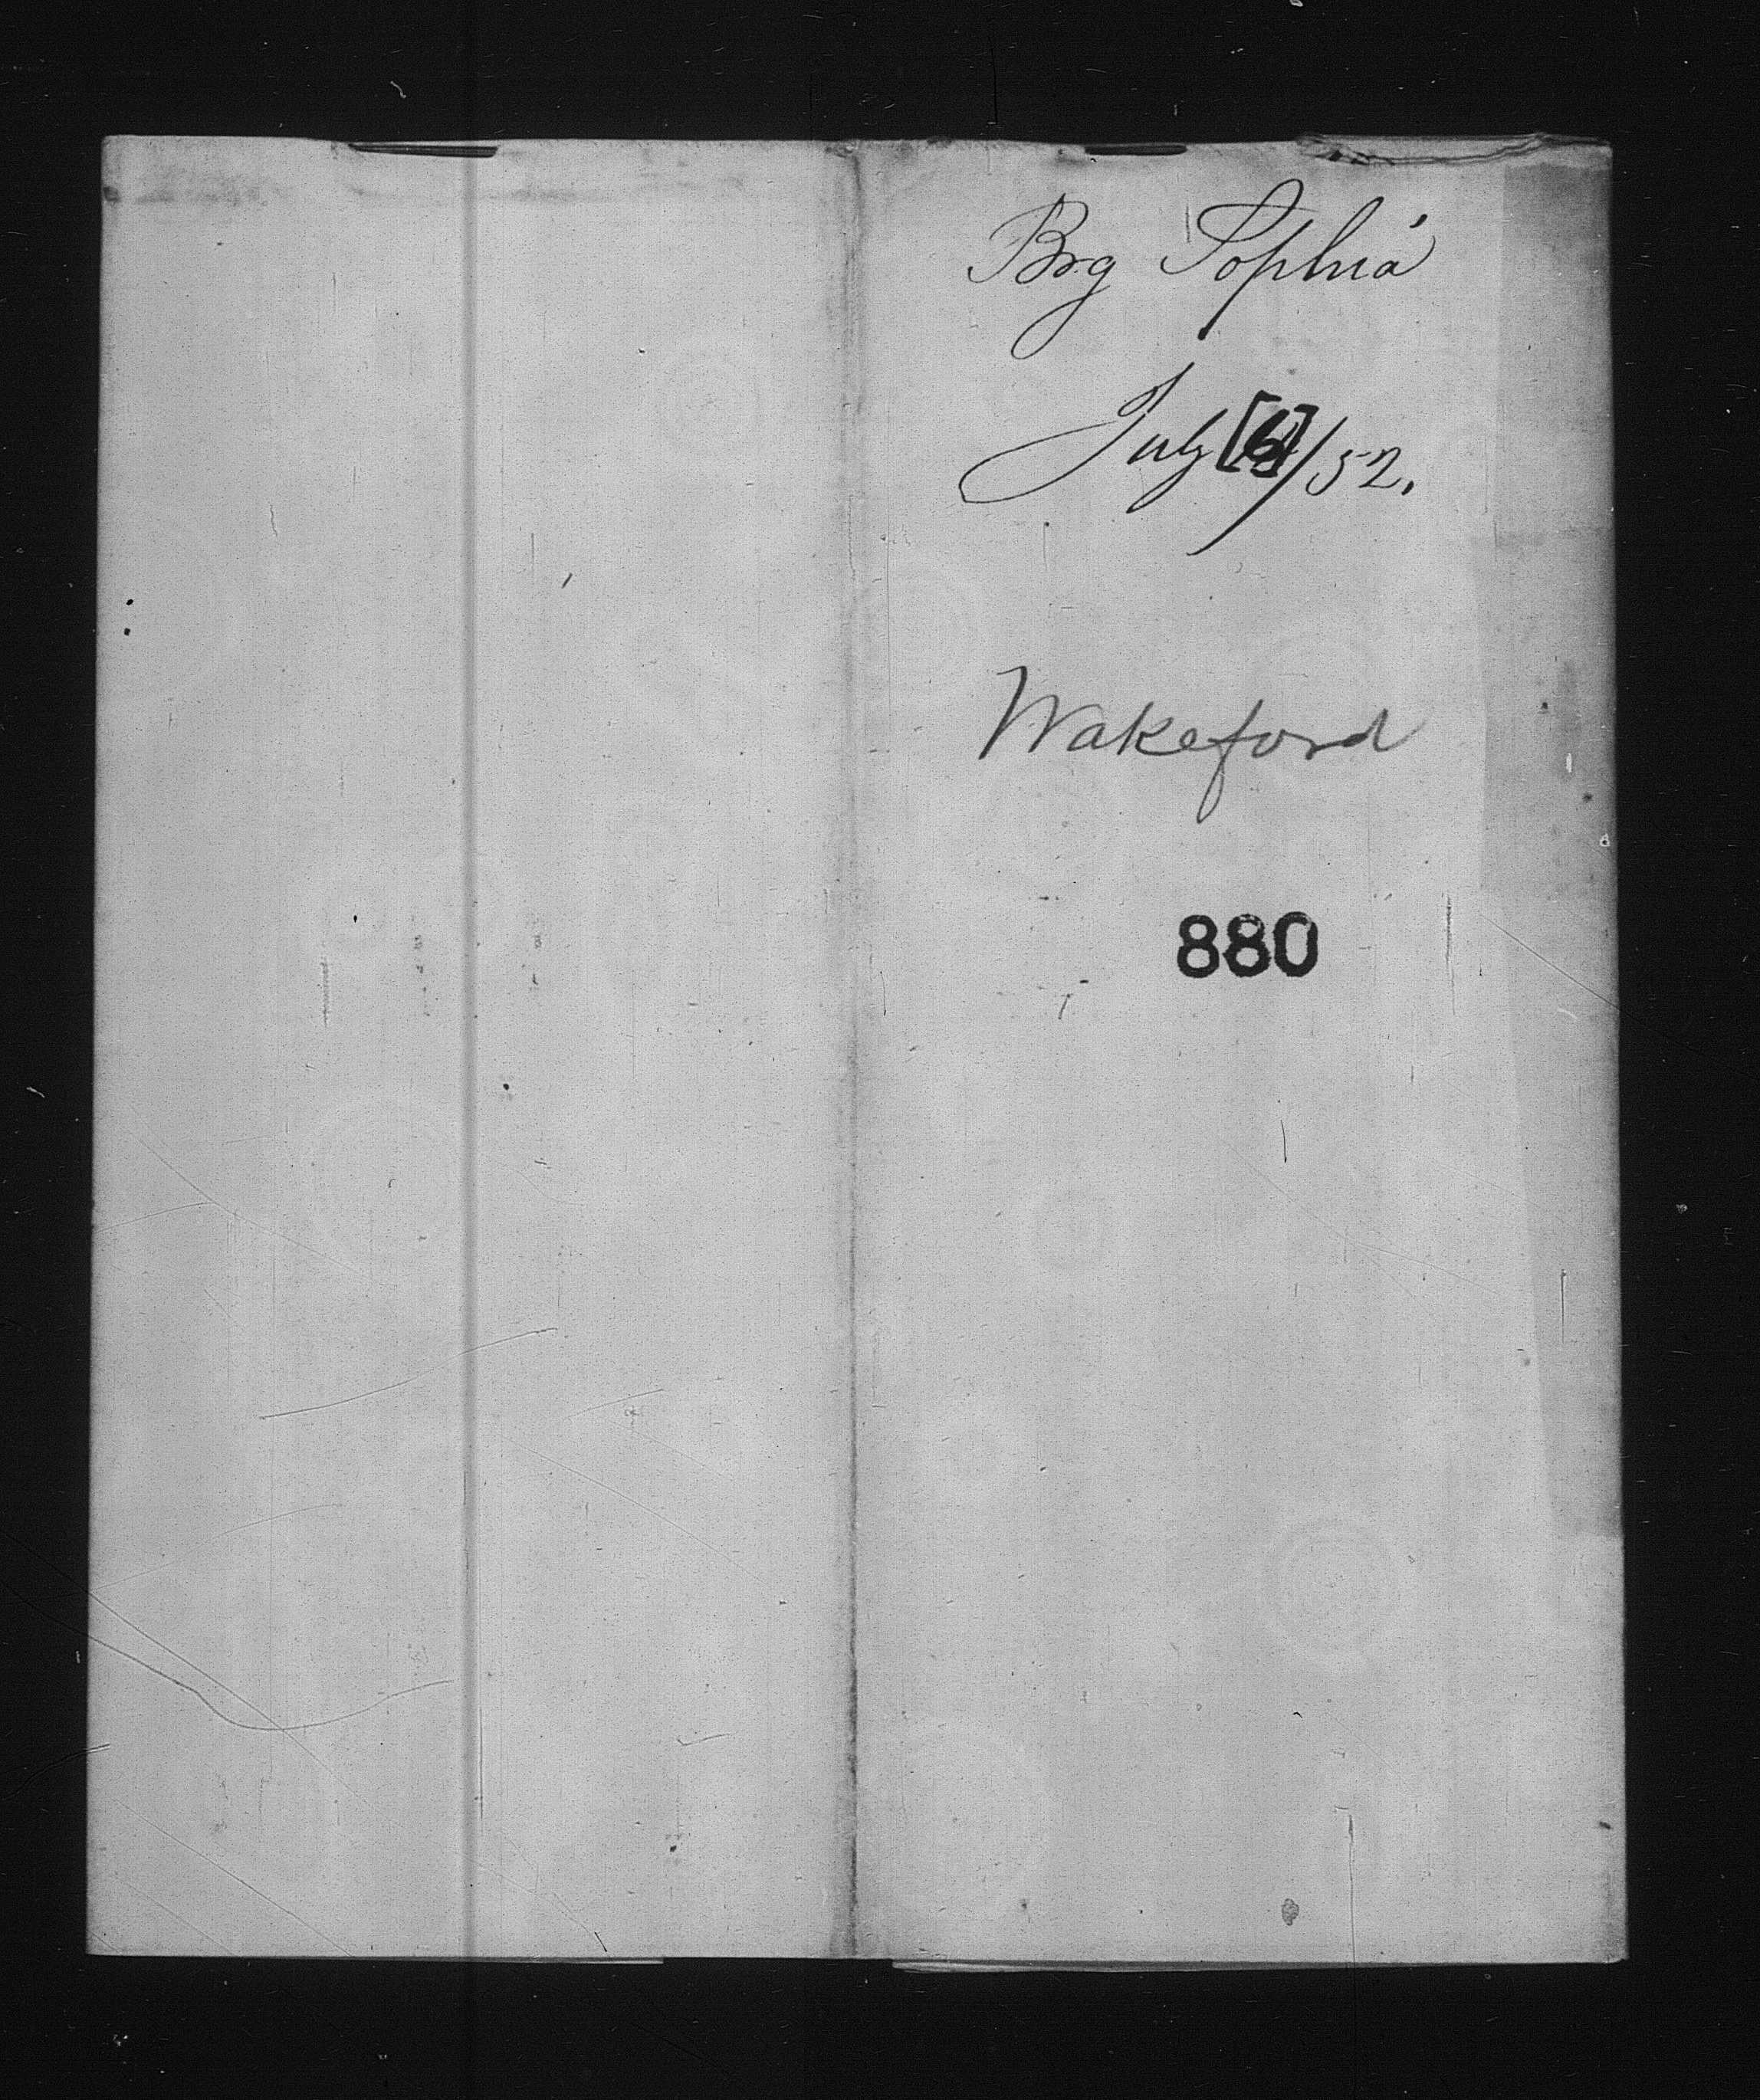 Brg Sophia
July [6]/52.
Wakeford
880